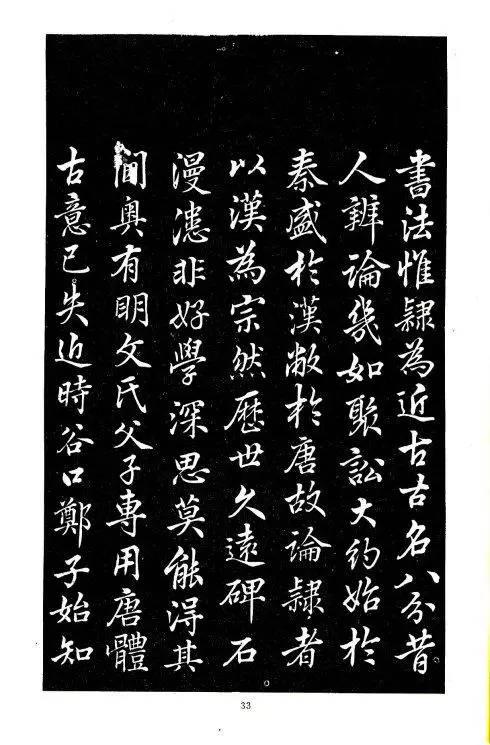 書法惟隸為近古古名八分昔
人辨論幾如聚訟大約始於
秦盛於漢敝於唐故論隸者
以漢為宗然歷世久遠碑石
漫漶非好學深思莫能得其
閫奧有明文氏父子專用唐體
古意已失近時谷口鄭子始知
33